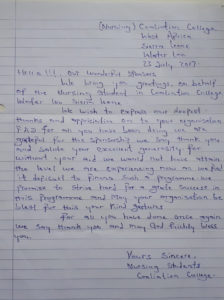 (Nursing) Coaliation College
West Africa
Sierra Leone
Waterloo
23 July 2017
Hello!!! Our wonderful Sponsors
We bring you greetings, on behalf
of the Nursing Student in Coaliation College
Waterloo, Sierra Leone.
We wish to express our deepest
thanks and appreciation on to your organisation
for all you have been doing we are
grateful for this sponsorship we say thank you
and salute your excellent generosity for
without you and we would not have attain
the level we are experiencing now as we find
it difficult to finance such a programme we
promise to strive hard for a great success in
this programme and may your organisation be
blest for this your kind gestures
For all you have done once again
we say thank you and may God richly bless
you.
Yours Sincere.
Nursing Students
Coaliation College.